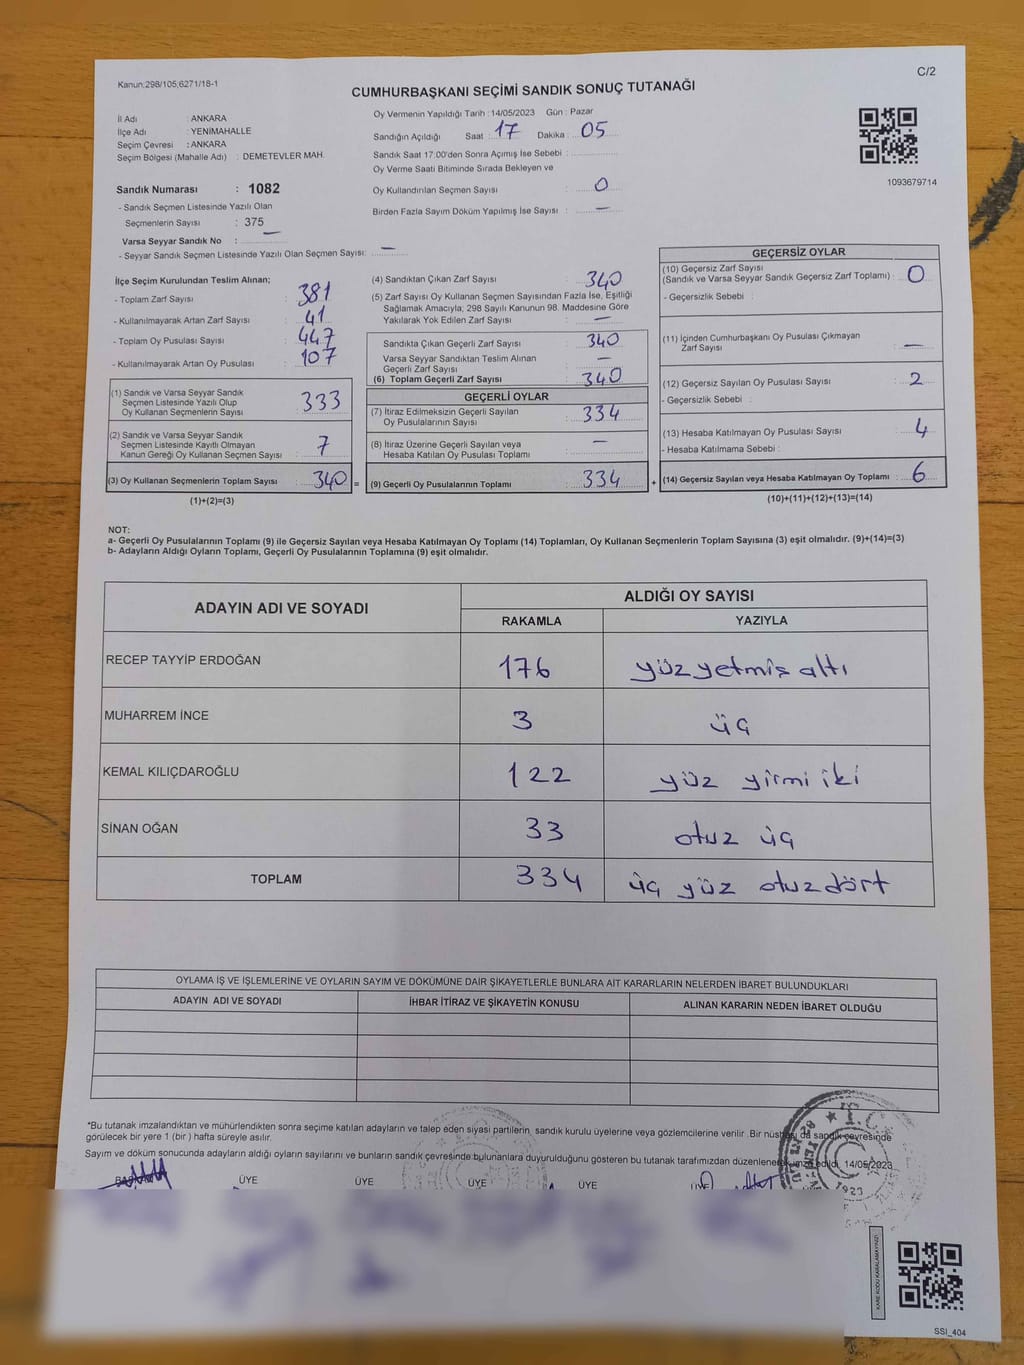 Kanun:298/105;6271/18-1
C/2
CUMHURBAŞKANI SEÇİMİ SANDIK SONUÇ TUTANAĞI
İl Adı : ANKARA
İlçe Adı : YENİMAHALLE
Seçim Çevresi : ANKARA
Seçim Bölgesi (Mahalle Adı) : DEMETEVLER MAH.
Sandık Numarası : 1082
- Sandık Seçmen Listesinde Yazılı Olan
Seçmenlerin Sayısı : 375
Varsa Seyyar Sandık No : —
- Seyyar Sandık Seçmen Listesinde Yazılı Olan Seçmen Sayısı: —
Oy Vermenin Yapıldığı Tarih : 14/05/2023 Gün : Pazar
Sandığın Açıldığı Saat : 17 Dakika : 05
Sandık Saat 17:00'den Sonra Açımış İse Sebebi :
Oy Verme Saati Bitiminde Sırada Bekleyen ve
Oy Kullandırılan Seçmen Sayısı : 0
Birden Fazla Sayım Döküm Yapılmış İse Sayısı : —
1093679714
İlçe Seçim Kurulundan Teslim Alınan;
- Toplam Zarf Sayısı : 381
- Kullanılmayarak Artan Zarf Sayısı : 41
- Toplam Oy Pusulası Sayısı : 447
- Kullanılmayarak Artan Oy Pusulası : 107
(1) Sandık ve Varsa Seyyar Sandık
Seçmen Listesinde Yazılı Olup
Oy Kullanan Seçmenlerin Sayısı : 333
(2) Sandık ve Varsa Seyyar Sandık
Seçmen Listesinde Kayıtlı Olmayan
Kanun Gereği Oy Kullanan Seçmen Sayısı : 7
(3) Oy Kullanan Seçmenlerin Toplam Sayısı : 340 =
(1)+(2)=(3)
(4) Sandıktan Çıkan Zarf Sayısı : 340
(5) Zarf Sayısı Oy Kullanan Seçmen Sayısından Fazla İse, Eşitliği
Sağlamak Amacıyla, 298 Sayılı Kanunun 98. Maddesine Göre
Yakılarak Yok Edilen Zarf Sayısı : —
Sandıkta Çıkan Geçerli Zarf Sayısı : 340
Varsa Seyyar Sandıktan Teslim Alınan
Geçerli Zarf Sayısı : —
(6) Toplam Geçerli Zarf Sayısı : 340
GEÇERLİ OYLAR
(7) İtiraz Edilmeksizin Geçerli Sayılan
Oy Pusulalarının Sayısı : 334
(8) İtiraz Üzerine Geçerli Sayılan veya
Hesaba Katılan Oy Pusulası Toplamı : —
(9) Geçerli Oy Pusulalarının Toplamı : 334 +
GEÇERSİZ OYLAR
(10) Geçersiz Zarf Sayısı
(Sandık ve Varsa Seyyar Sandık Geçersiz Zarf Toplamı) : 0
- Geçersizlik Sebebi :
(11) İçinden Cumhurbaşkanı Oy Pusulası Çıkmayan
Zarf Sayısı : —
(12) Geçersiz Sayılan Oy Pusulası Sayısı : 2
- Geçersizlik Sebebi :
(13) Hesaba Katılmayan Oy Pusulası Sayısı : 4
- Hesaba Katılmama Sebebi :
(14) Geçersiz Sayılan veya Hesaba Katılmayan Oy Toplamı : 6
(10)+(11)+(12)+(13)=(14)
NOT:
a- Geçerli Oy Pusulalarının Toplamı (9) ile Geçersiz Sayılan veya Hesaba Katılmayan Oy Toplamı (14) Toplamları, Oy Kullanan Seçmenlerin Toplam Sayısına (3) eşit olmalıdır. (9)+(14)=(3)
b- Adayların Aldığı Oyların Toplamı, Geçerli Oy Pusulalarının Toplamına (9) eşit olmalıdır.
ADAYIN ADI VE SOYADI ALDIĞI OY SAYISI
RAKAMLA YAZIYLA
RECEP TAYYİP ERDOĞAN 176 yüz yetmiş altı
MUHARREM İNCE 3 üç
KEMAL KILIÇDAROĞLU 122 yüz yirmi iki
SİNAN OĞAN 33 otuz üç
TOPLAM 334 üç yüz otuz dört
OYLAMA İŞ VE İŞLEMLERİNE VE OYLARIN SAYIM VE DÖKÜMÜNE DAİR ŞİKAYETLERLE BUNLARA AİT KARARLARIN NELERDEN İBARET BULUNDUKLARI
ADAYIN ADI VE SOYADI İHBAR İTİRAZ VE ŞİKAYETİN KONUSU ALINAN KARARIN NEDEN İBARET OLDUĞU
*Bu tutanak imzalandıktan ve mühürlendikten sonra seçime katılan adayların ve talep eden siyasi partilerin, sandık kurulu üyelerine veya gözlemcilerine verilir .Bir nüshası da sandık çevresinde
görülecek bir yere 1 (bir ) hafta süreyle asılır.
Sayım ve döküm sonucunda adayların aldığı oyların sayılarını ve bunların sandık çevresinde bulunanlara duyurulduğunu gösteren bu tutanak tarafımızdan düzenlenerek imza edildi. 14/05/2023
BAŞKAN ÜYE ÜYE ÜYE ÜYE ÜYE
T.C.
1923
KARE KODU KARALAMAYINIZ!
SSI_404